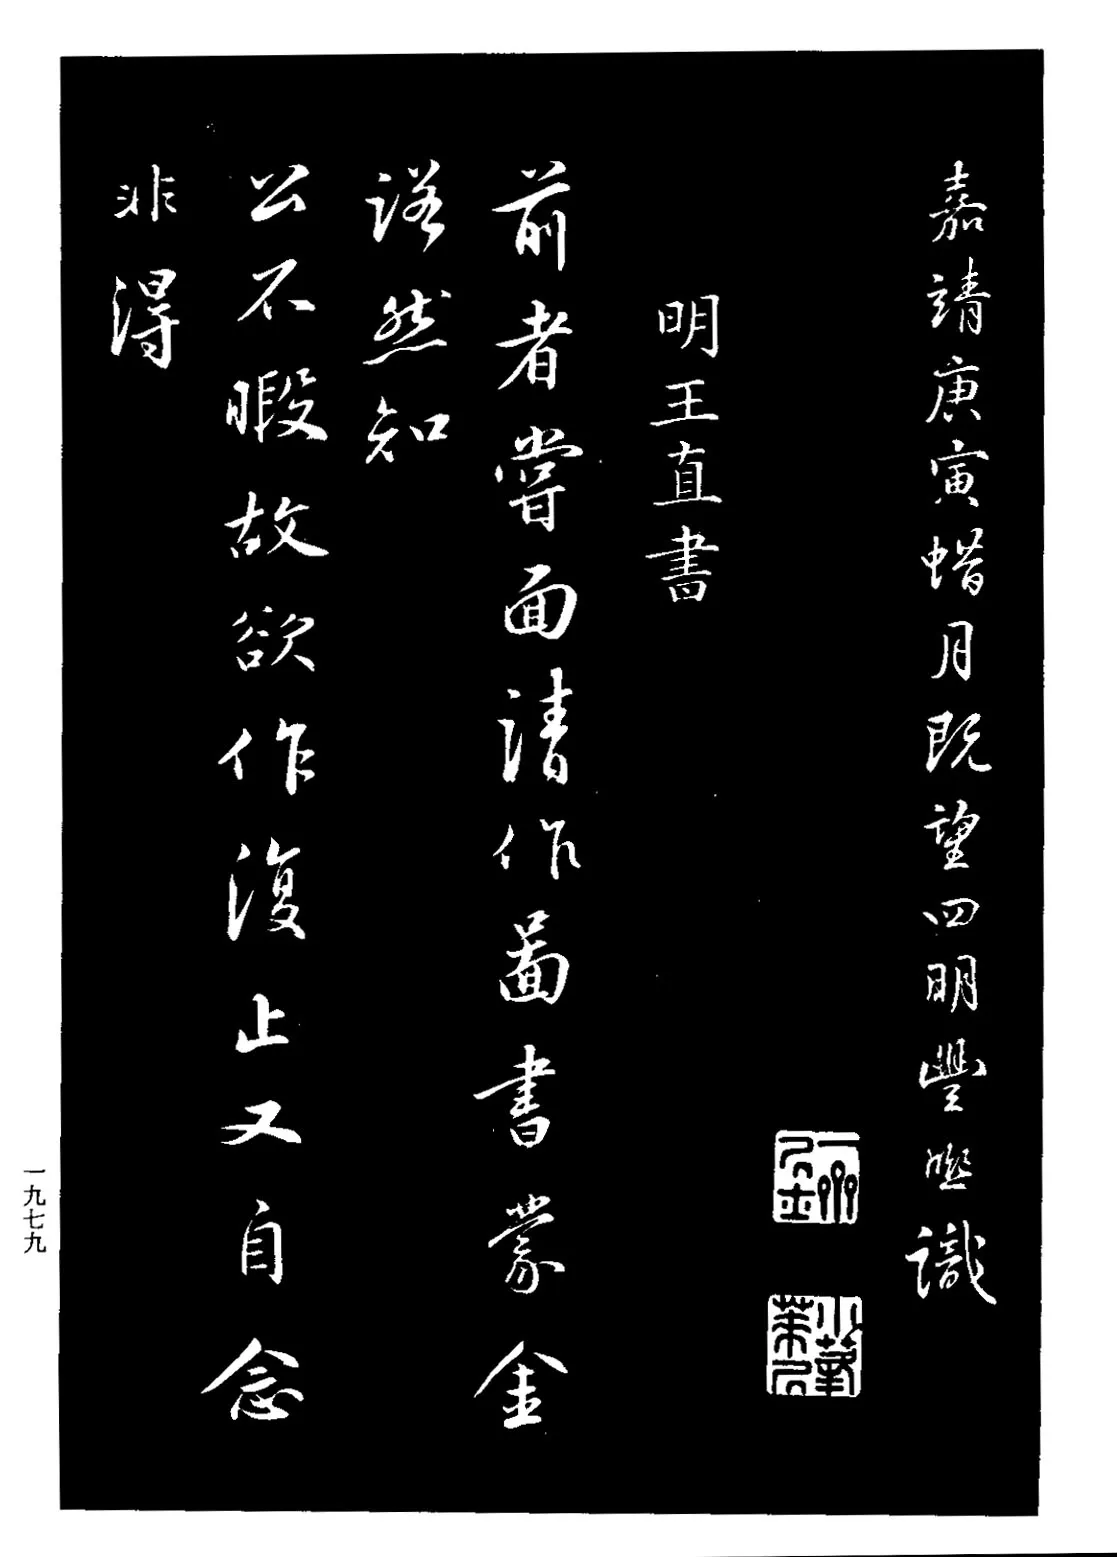 嘉靖庚寅蜡月既望四明豐熙識
明王直書
前者嘗面請作圖書蒙金
諾然知
公不暇故欲作復止又自念
非得
一九七九